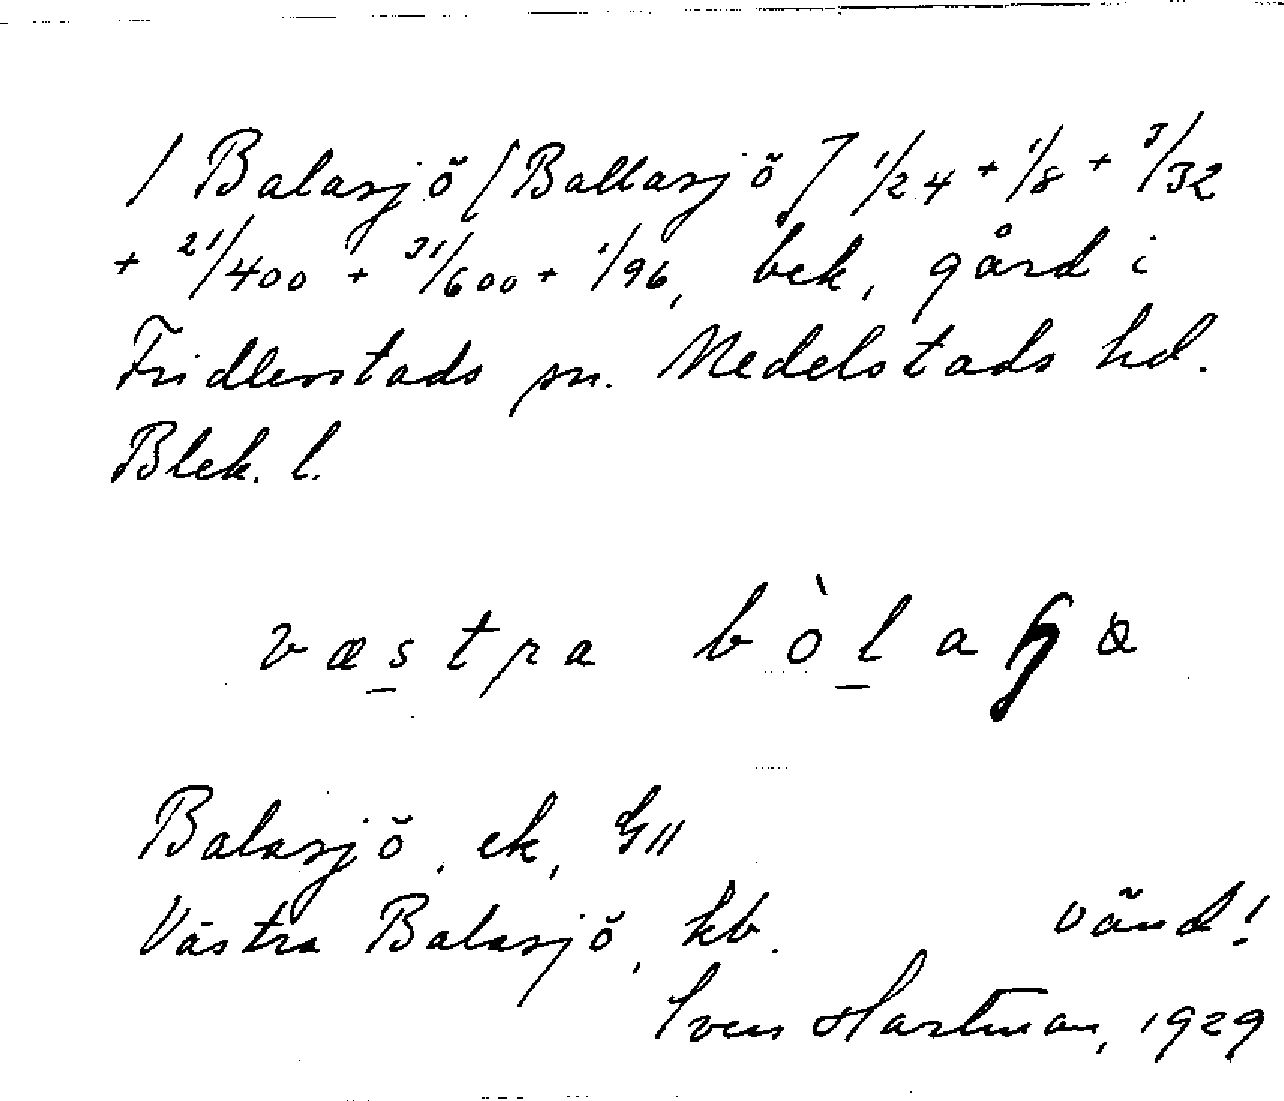 / Balasjö [Ballasjö] 1/24 + 1/8 + 3/32
+ 21/400 + 31/600 + 1/96, bek, gård i
Fridlevstads sn. Medelstads hd.
Blek. l.
væstra bòlaꞕa
Balasjö, ek, GII
Västra Balasjö, kb.
vänd!
Sven Hartman, 1929